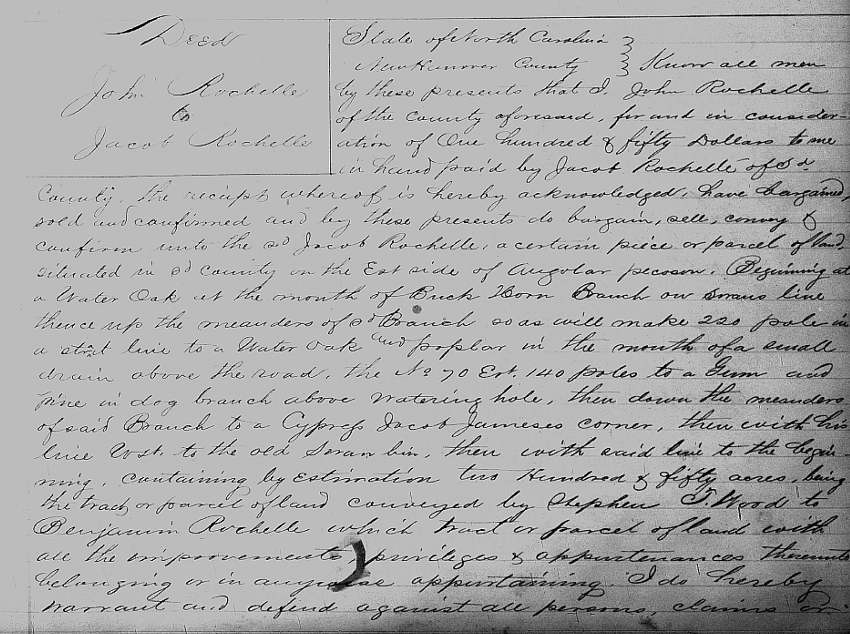 Deed
John Rochelle
to
Jacob Rochelle
State of North Carolina
New Hanover County } Know all men
by these presents that I, John Rochelle
of the County aforesaid, for and in consider-
ation of One hundred & fifty Dollars to me
in hand paid by Jacob Rochelle of Sd.
County, the receipt whereof is hereby acknowledged, have bargained,
sold and confirmed and by these presents do bargain, sell, convey &
confirm unto the sd Jacob Rochelle, a certain piece or parcel of land,
situated in sd county on the Est side of Angolar pocoson. Beginning at
a Water Oak at the mouth of Buck Horn Branch on Swans line
thence up the meanders of sd Branch so as will make 220 pole in
a strat line to a Water Oak and poplar in the mouth of a small
drain above the road, the No 70 Est. 140 poles to a Gum and
pine in dog branch above Watering hole, then down the meanders
of said Branch to a Cypress Jacob Jameses corner, then with his
line Wst. to the old Swan line, then with said line to the begin-
ning, containing by Estimation two Hundred & fifty acres, being
the tract or parcel of land conveyed by Stephen T. Wood to
Benjamin Rochelle which tract or parcel of land with
all the improvements privileges & appurtenances thereunto
belonging or in any appurtaining. I do hereby
warrant and defend against all persons, claims or